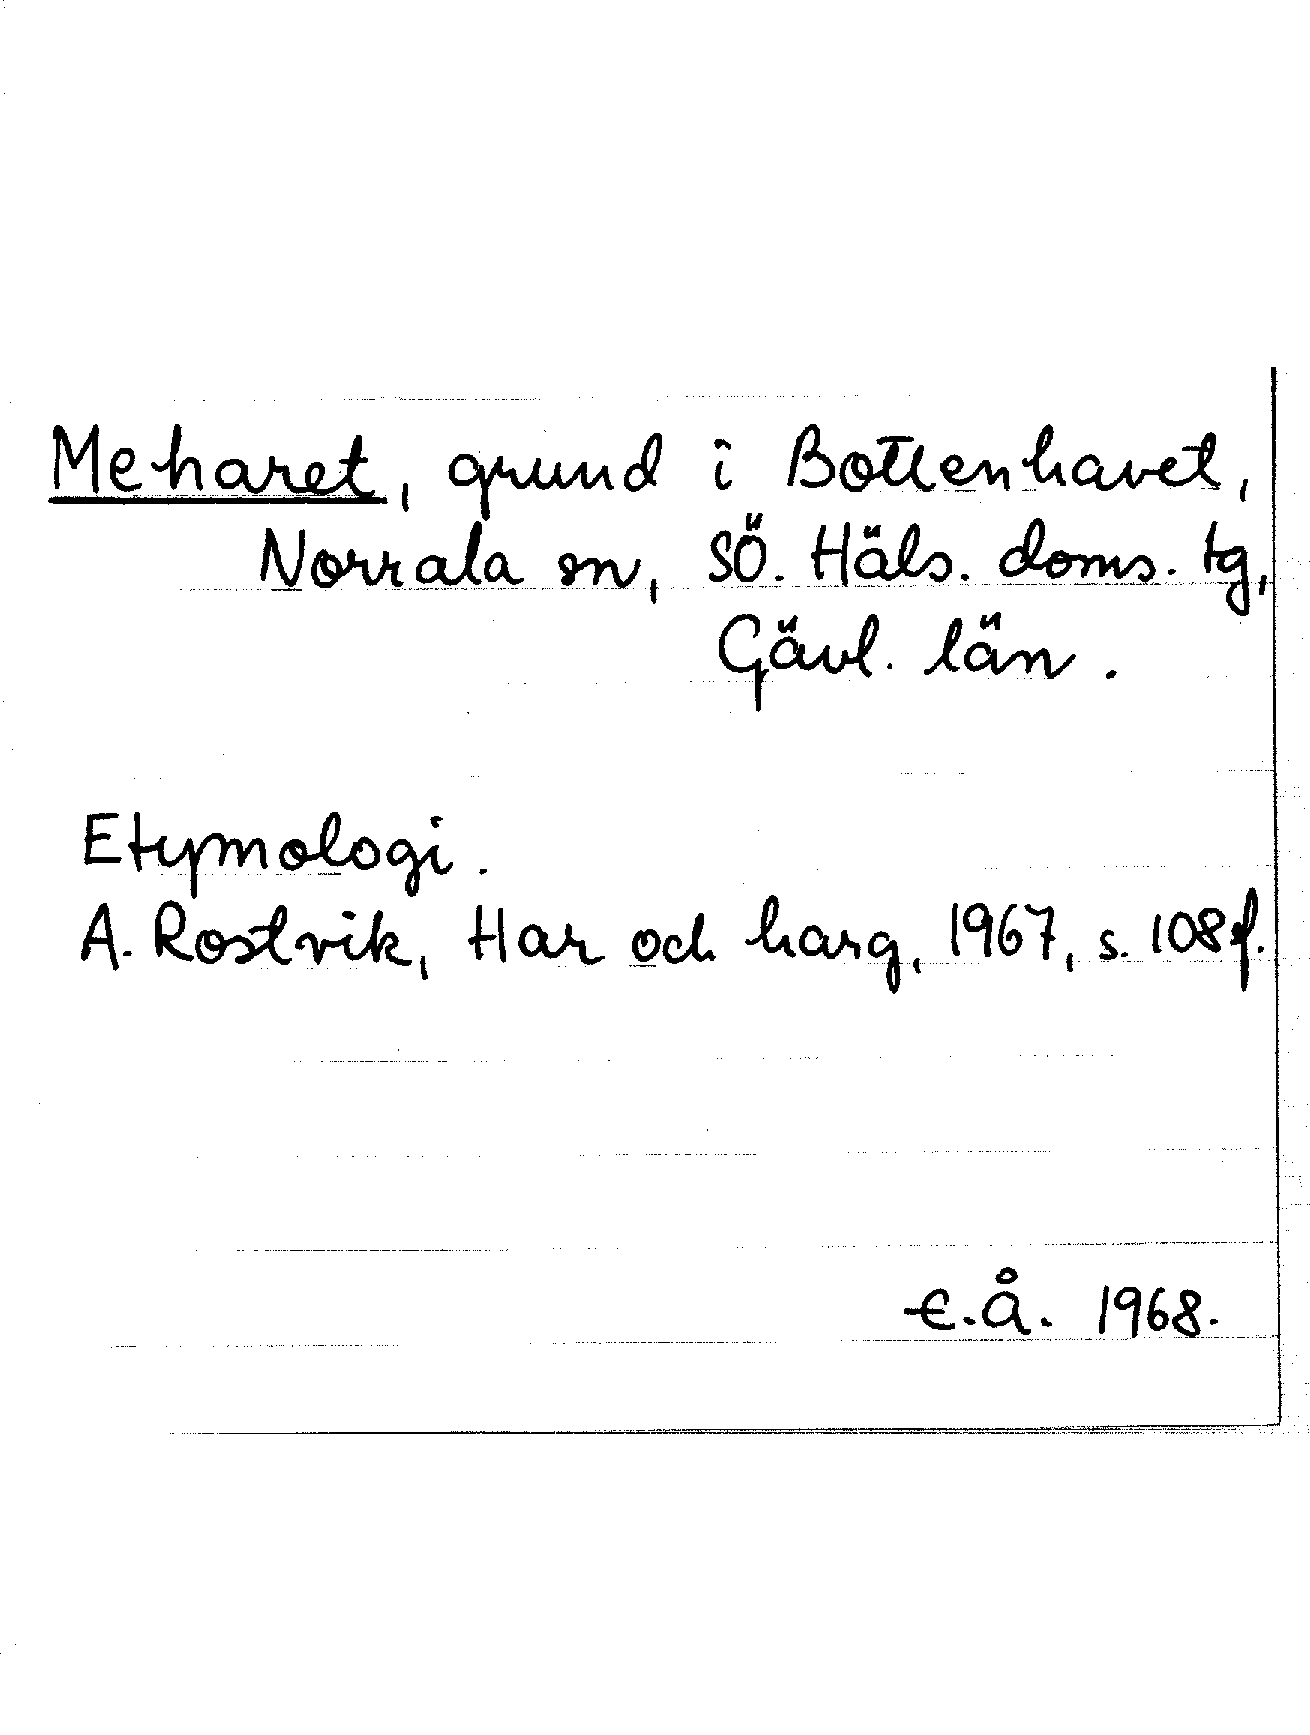 Meharet, grund i Bottenhavet,
Norrala sn, SÖ. Häls. doms. tg,
Gävl. län.
Etymologi.
A. Rostvik, Har och harg, 1967, s. 108f.
E.Å. 1968.